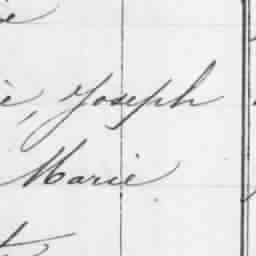 e, Joseph
Marie